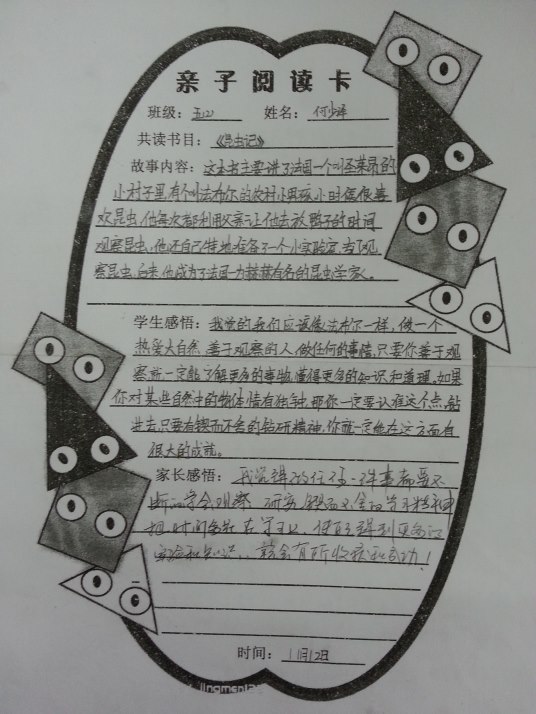 亲子阅读卡
班级：五(2) 姓名：何少泽
共读书目：《昆虫记》
故事内容：这本书主要讲了法国一个叫圣莱昂的
小村子里有个叫法布尔的农村小男孩，小时候很喜
欢昆虫，他每次都利用父亲让他去放鸭子的时间
观察昆虫，他还自己特地准备了一个小实验室，为了观
察昆虫，后来他成为了法国一为赫赫有名的昆虫学家。
学生感悟：我觉的我们应该像法布尔一样，做一个
热爱大自然，善于观察的人做任何的事情，只要你善于观
察就一定能了解更多的事物，懂得更多的知识和道理。如果
你对某些自然中的物体情有独钟，那你一定要认准这个点，钻
进去，只要有锲而不舍的钻研精神，你就一定他在这方面有
很大的成就。
家长感悟：我觉得做任何一件事都要不
断的学会观察 研究
把时间 在学习上，使 得到更多的
和知识，就会有所收获和成功！
时间：11月12日